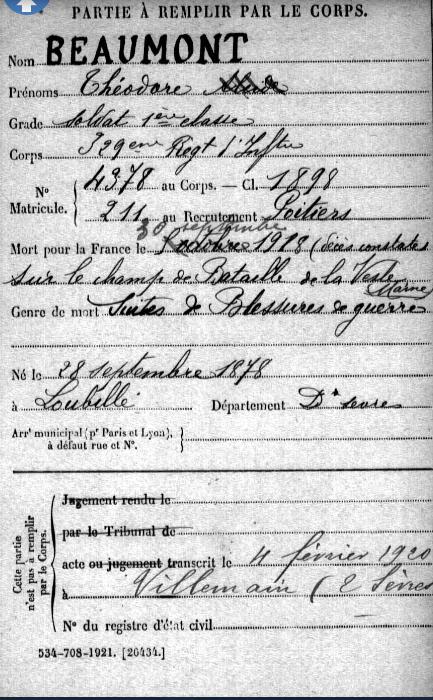 PARTIE À REMPLIR PAR LE CORPS.
Nom BEAUMONT
Prénoms Théodore
Grade Soldat 1ère classe
Corps 329eme Regt d'Inftie
N° Matricule. { 4378 au Corps. — Cl. 1898
211 au Recrutement Poitiers
30 septembre
Mort pour la France le octobre 1918 (décès constaté
sur le champ de Bataille de la Vesle
Marne
Genre de mort Suites de Blessures de guerre
Né le 28 septembre 1878
à Loubillé Département Dx sevres
Arrt municipal (pr Paris et Lyon), }
à défaut rue et N°.
Cette partie n'est pas à remplir par le Corps.
Jugement rendu le
par le Tribunal de
acte ou jugement transcrit le 4 février 1920
à Villemain (2 Sèvres
N° du registre d'état civil
534-708-1921. [26434.]